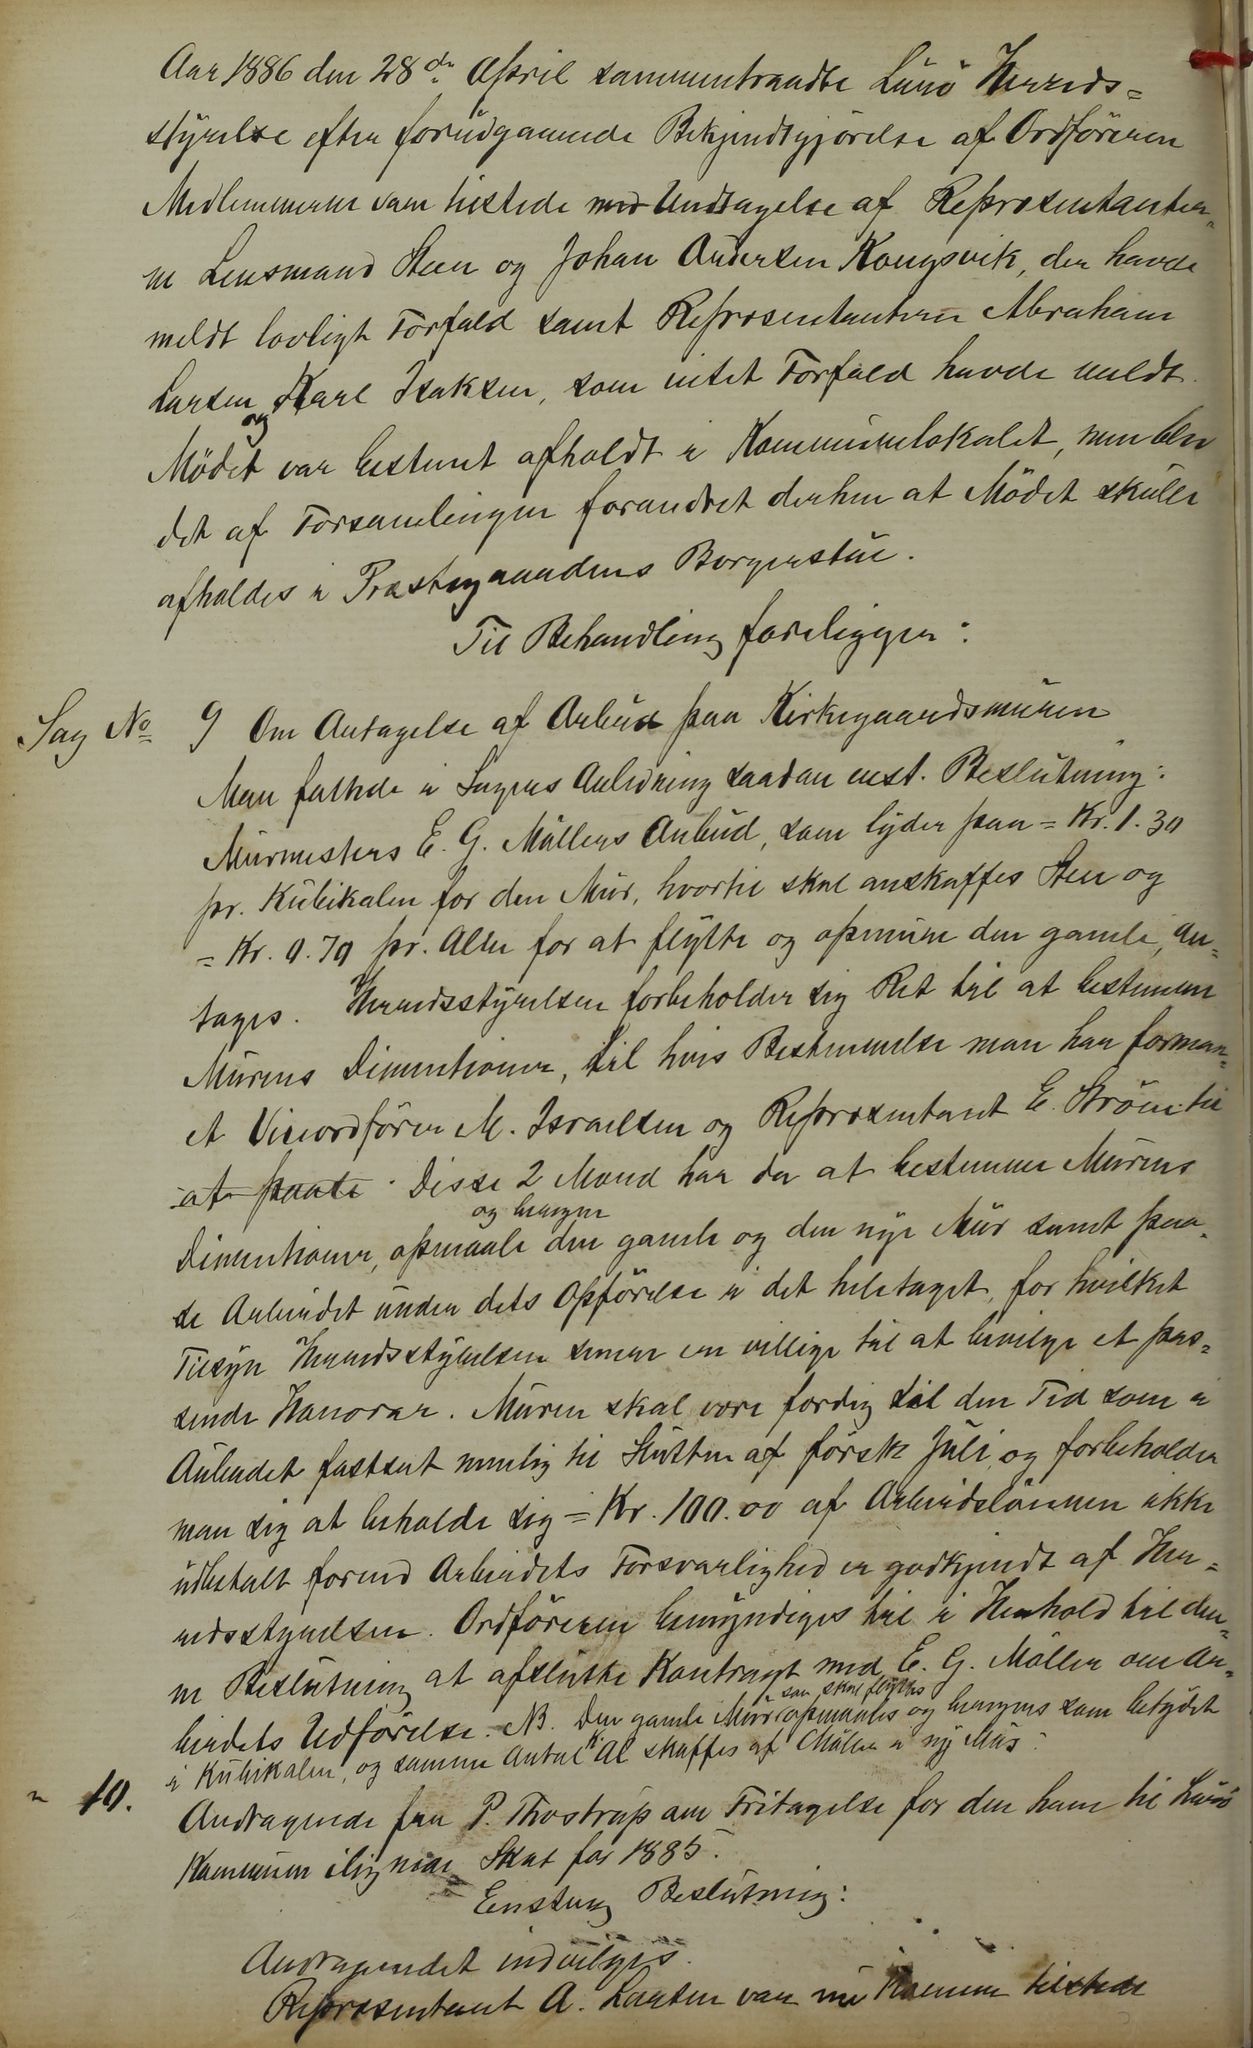 Aar 1886 den 28de April sammentraadte Lurö Herreds=
styrelse efter forudgaaende Bekjendtgjörelse af Ordföreren
Medlemmerne vare tilstede med Undtagelse af Repræsentanter-
ne Lensmand Steen og Johan Andersen Kongsvik, der havde
meldt lovligt Forfald samt Repræsentanterne Abraham
Larsen og Karl Isaksen, som intet Forfald havde meldt.
Mödet var bestemt afholdt i Kommunelokalet, men blev
det af Forsamlingen forandret derhen at Mödet skulle
afholdes i Præstegaardens Borgerstue.
Til Behandling foreligger:
Sag No 9 Om Antagelse af Anbud paa Kirkegaardsmuren
Man fattede i Sagens Anledning saadan enst. Beslutning:
Murmesters E. G. Möllers Anbud, som lyder paa = Kr. 1.30
pr. Kubikalen for den Mur, hvortil skal anskaffes Sten og
= Kr. 0.70 pr. Alen for at flytte og opmure den gamle, an-
tages. Herredsstyrelsen forbeholder sig Ret til at bestemme
Murens Dimentioner, til hvis Bestemmelse man har forman-
et Viceordförer M. Israelsen og Repræsentant E. Ström til
at paate. Disse 2 Mænd har da at bestemme Murens
Dimentioner, opmaale og beregne den gamle og den nye Mur samt paa-
se Arbeidet under dets Opförelse i det heletaget, for hvilket
Tilsyn Herredsstyrelsen senere er villige til at bevilge et pas-
sende Honorar. Muren skal være færdig til den Tid som i
Anbudet fastsat nemlig til Slutten af förstk Juli, og forbeholder
man sig at beholde sig = Kr. 100.00 af Arbeidslönnen ikke
udbetalt forend Arbeidets Forsvarlighed er godkjendt af Her-
redsstyrelsen. Ordföreren bemyndiges til i Henhold til den-
ne Beslutning at afslutte Kontragt med E. G. Möller om Ar-
beidets Udförelse. NB. Den gamle Mur som skal flyttes opmaales og beregnes som betydet
i Kubikalen, og samme Antal Al skaffes af Möller i ny Mur.
" 10. Andragende fra P. Thostrup om Fritagelse for den ham til Lurö
Kommune ilignede Skat for 1885.
Enstemg Beslutning:
Andragendet indvilges.
Repræsentant A. Larsen var nu kommen tilstede